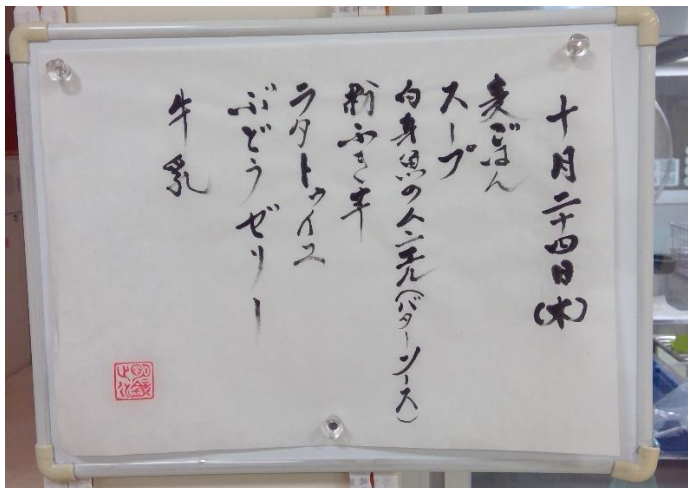 十月二十四日(木)
麦ごはん
スープ
白身魚のムニエル(バターソース)
粉ふき芋
ラタトゥイユ
ぶどうゼリー
牛乳